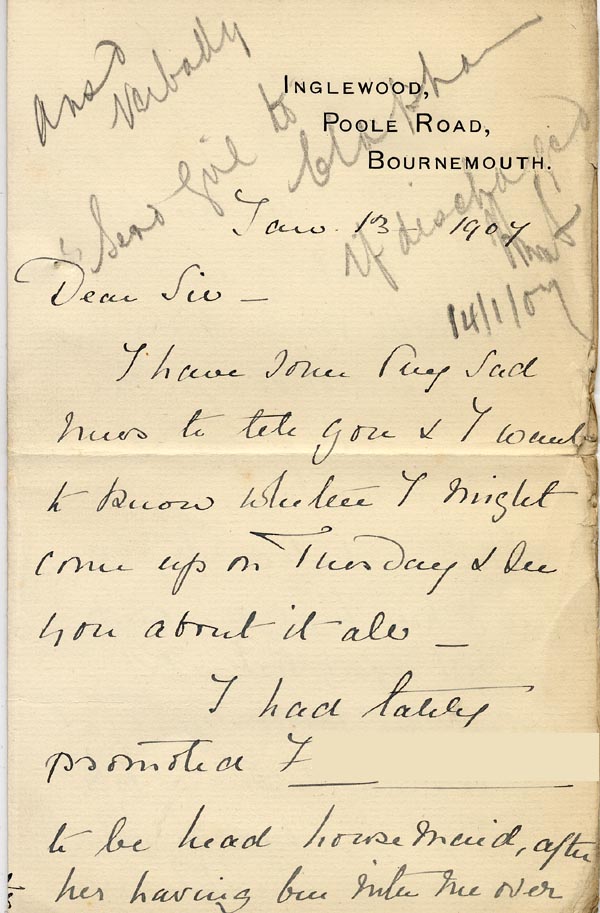 Ansd
Verbally
INGLEWOOD,
POOLE ROAD,
BOURNEMOUTH.
Send girl to
Clapham
if discharged
14/1/07
Jan. 13 - 1907
Dear Sir -
I have some very sad
news to tell you & I want
to know whether I might
come up on Tuesday & see
you about it all -
I had lately
promoted F
to be head housemaid, after
her having been with me over